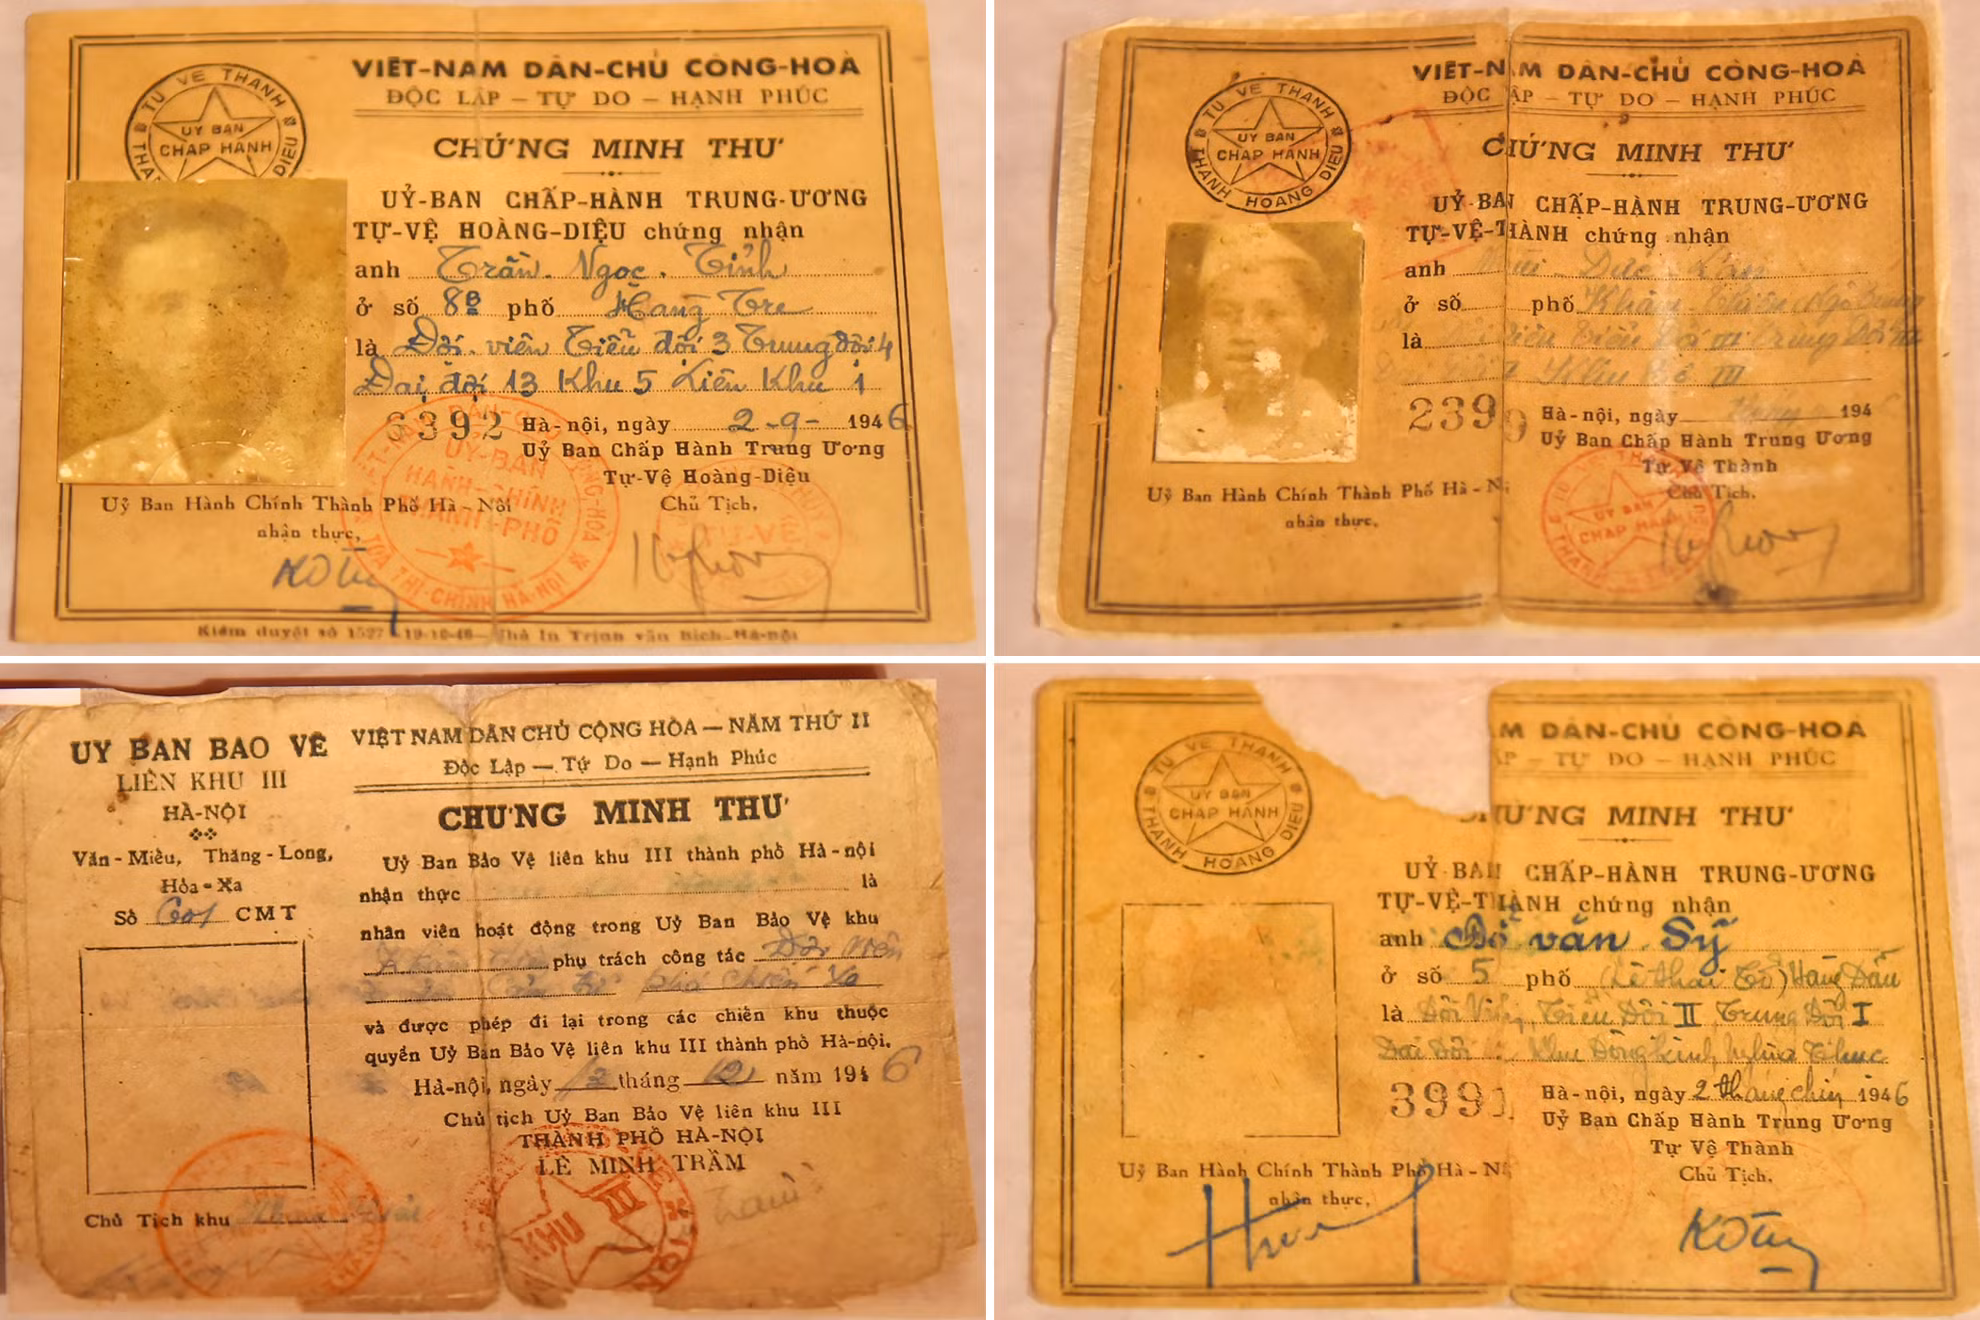 TỰ VỆ THÀNH
HOÀNG DIỆU
UỶ BAN
CHẤP HÀNH
VIỆT-NAM DÂN-CHỦ CỘNG-HOÀ
ĐỘC LẬP - TỰ DO - HẠNH PHÚC
CHỨNG MINH THƯ
UỶ-BAN CHẤP-HÀNH TRUNG-ƯƠNG
TỰ-VỆ HOÀNG-DIỆU chứng nhận
anh Trần Ngọc Tỉnh
ở số 8B phố Hàng Tre
là Đội viên Tiểu đội 3 Trung đội 4
Đại đội 13 Khu 5 Liên Khu 1
6392 Hà-nội, ngày 2-9-1946
Uỷ Ban Chấp Hành Trung Ương
Tự-Vệ Hoàng-Diệu
Chủ Tịch,
Uỷ Ban Hành Chính Thành Phố Hà-Nội
nhận thực,
UỶ-BAN
HÀNH-CHÍNH
THÀNH-PHỐ
TOÀ THỊ-CHÍNH HÀ-NỘI
TỰ-VỆ
Kiểm duyệt số 1527 19-10-46 — Nhà In Trịnh văn Bích Hà-nội
TỰ VỆ THÀNH
THÀNH HOÀNG DIỆU
UỶ BAN
CHẤP HÀNH
VIỆT-NAM DÂN-CHỦ CỘNG-HOÀ
ĐỘC LẬP - TỰ DO - HẠNH PHÚC
CHỨNG MINH THƯ
UỶ-BAN CHẤP-HÀNH TRUNG-ƯƠNG
TỰ-VỆ-THÀNH chứng nhận
anh Đức
ở số phố Khâm Thiên
là Tiểu Đội III Trung Đội
Khu III
2399 Hà-nội, ngày 194
Uỷ Ban Chấp Hành Trung Ương
Tự Vệ Thành
Chủ Tịch,
Uỷ Ban Hành Chính Thành Phố Hà-N
nhận thực,
UỶ BAN
CHẤP HÀNH
UỶ BAN BẢO VỆ
LIÊN KHU III
HÀ-NỘI
Văn-Miếu, Thăng-Long,
Hỏa-Xa
Số 601 CMT
VIỆT NAM DÂN CHỦ CỘNG HÒA — NĂM THỨ II
Độc Lập — Tự Do — Hạnh Phúc
CHỨNG MINH THƯ
Uỷ Ban Bảo Vệ liên khu III thành phố Hà-nội
nhận thực là
nhân viên hoạt động trong Uỷ Ban Bảo Vệ khu
phụ trách công tác Đội Viên
phá chiến xa
và được phép đi lại trong các chiến khu thuộc
quyền Uỷ Ban Bảo Vệ liên khu III thành phố Hà-nội.
Hà-nội, ngày 12 tháng 12 năm 1946
Chủ tịch Uỷ Ban Bảo Vệ liên khu III
THÀNH PHỐ HÀ-NỘI
LÊ MINH TRẦM
Chủ Tịch khu
KHU III
TỰ VỆ THÀNH
THÀNH HOÀNG DIỆU
UỶ BAN
CHẤP HÀNH
M DÂN-CHỦ CỘNG-HOÀ
ẬP - TỰ DO - HẠNH PHÚC
CHỨNG MINH THƯ
UỶ-BAN CHẤP-HÀNH TRUNG-ƯƠNG
TỰ-VỆ-THÀNH chứng nhận
anh Đỗ văn Sỹ
ở số 5 phố (Lê Thái Tổ) Hàng Dầu
là Đội Viên, Tiểu Đội II Trung Đội I
Đại Đội Khu Đông Kinh Nghĩa Thục
3991 Hà-nội, ngày 2 tháng chín 1946
Uỷ Ban Chấp Hành Trung Ương
Tự Vệ Thành
Chủ Tịch,
Uỷ Ban Hành Chính Thành Phố Hà-N
nhận thực,